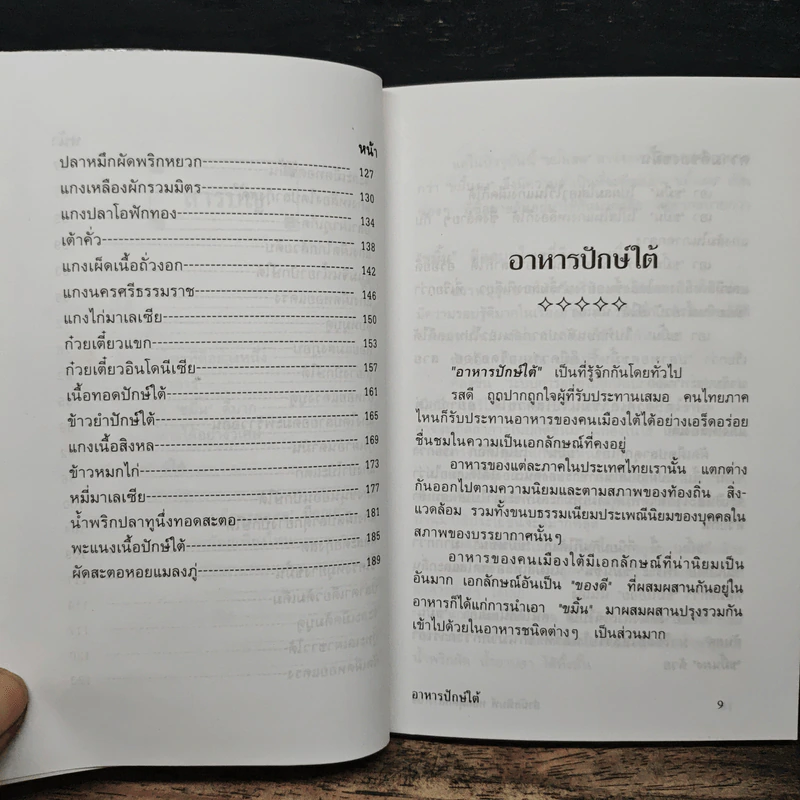 หน้า
ปลาหมึกผัดพริกหยวก 127
แกงเหลืองผักรวมมิตร 130
แกงปลาโอฟักทอง 134
เต้าคั่ว 138
แกงเผ็ดเนื้อถั่วงอก 142
แกงนครศรีธรรมราช 146
แกงไก่มาเลเซีย 150
ก๋วยเตี๋ยวแขก 153
ก๋วยเตี๋ยวอินโดนีเซีย 157
เนื้อทอดปักษ์ใต้ 161
ข้าวยำปักษ์ใต้ 165
แกงเนื้อสิงหล 169
ข้าวหมกไก่ 173
หมี่มาเลเซีย 177
น้ำพริกปลาทูนึ่งทอดสะตอ 181
พะแนงเนื้อปักษ์ใต้ 185
ผัดสะตอหอยแมลงภู่ 189
อาหารปักษ์ใต้
"อาหารปักษ์ใต้" เป็นที่รู้จักกันโดยทั่วไป
รสดี ถูกปากถูกใจผู้ที่รับประทานเสมอ คนไทยภาค
ไหนก็รับประทานอาหารของคนเมืองใต้ได้อย่างเอร็ดอร่อย
ชื่นชมในความเป็นเอกลักษณ์ที่คงอยู่
อาหารของแต่ละภาคในประเทศไทยเรานั้น แตกต่าง
กันออกไปตามความนิยมและตามสภาพของท้องถิ่น สิ่ง-
แวดล้อม รวมทั้งขนบธรรมเนียมประเพณีนิยมของบุคคลใน
สภาพของบรรยากาศนั้นๆ
อาหารของคนเมืองใต้มีเอกลักษณ์ที่น่านิยมเป็น
อันมาก เอกลักษณ์อันเป็น "ของดี" ที่ผสมผสานกันอยู่ใน
อาหารก็ได้แก่การนำเอา "ขมิ้น" มาผสมผสานปรุงรวมกัน
เข้าไปด้วยในอาหารชนิดต่างๆ เป็นส่วนมาก
อาหารปักษ์ใต้ 9